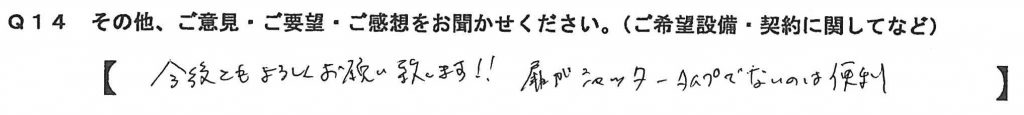 Q14 その他、ご意見・ご要望・ご感想をお聞かせください。(ご希望設備・契約に関してなど)
【 今後ともよろしくお願い致します!! 扉がシャッタータイプでないのは便利 】